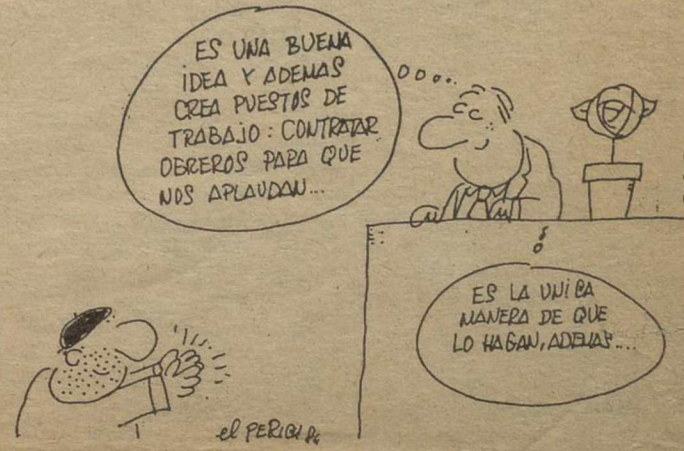 ES UNA BUENA
IDEA Y ADEMAS
CREA PUESTOS DE
TRABAJO: CONTRATAR
OBREROS PARA QUE
NOS APLAUDAN...
ES LA UNICA
MANERA DE QUE
LO HAGAN, ADEMAS....
el PERICH